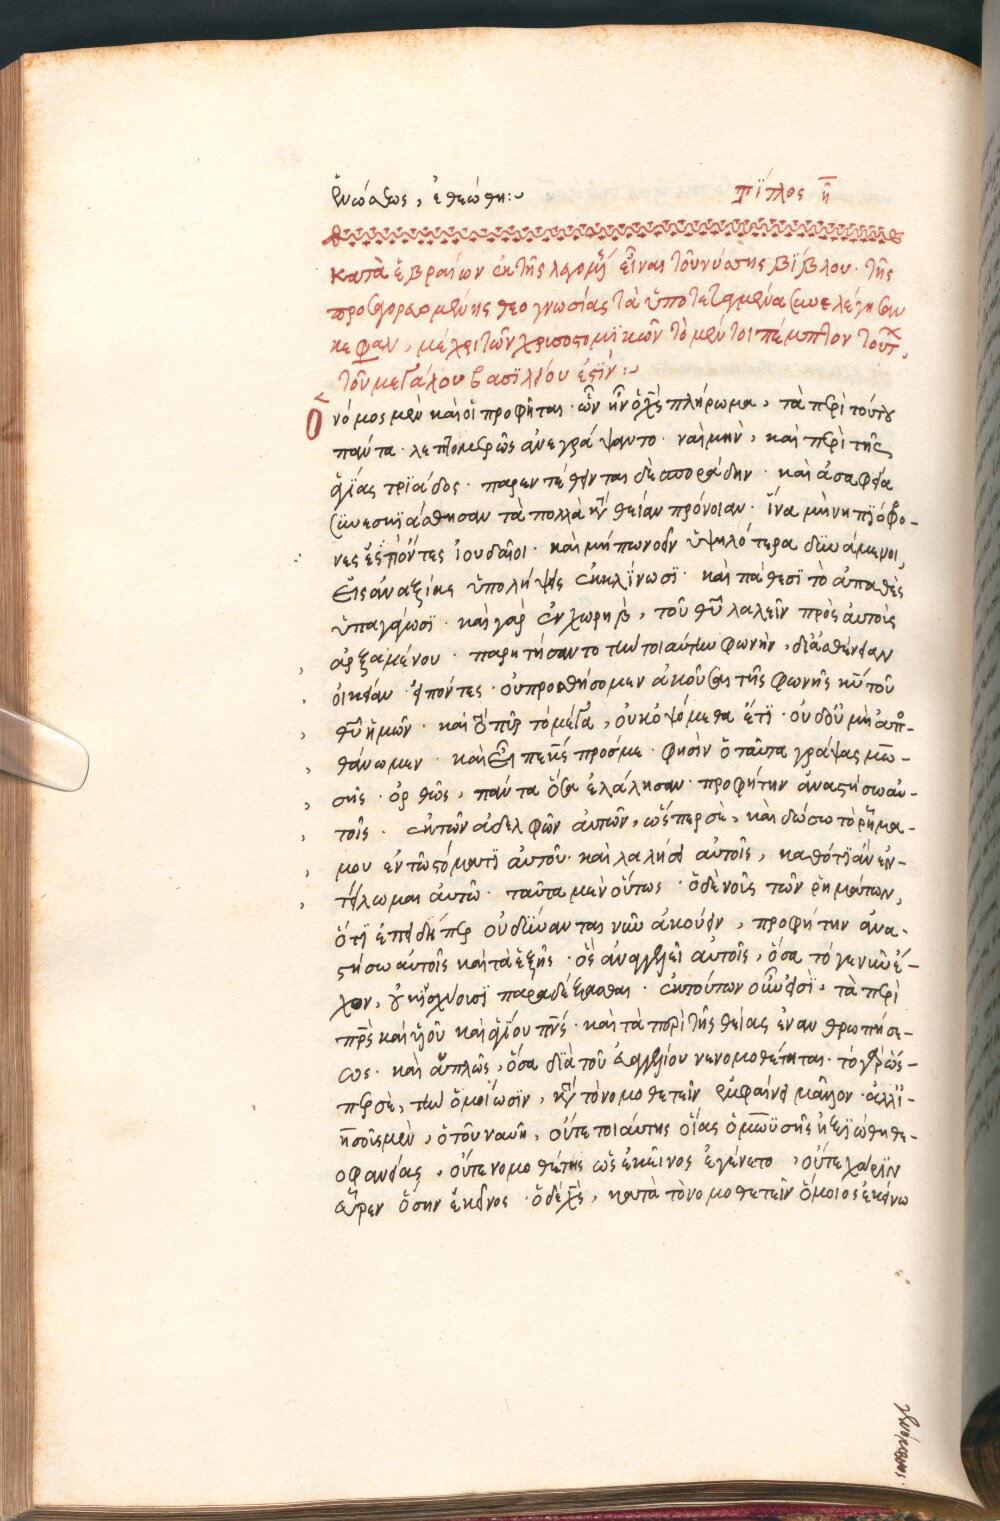 ἑνώσεως, ἐθεώθη:~ τίτλος η
κατὰ ἑβραίων ἐκ τῆς λεγομένης εἶναι τοῦ νύσσης βίβλου· τῆς
προσαγορευομένης θεογνωσίας τὰ ὑποτεταγμένα συνελέγησαν
κεφαλ, μέχρι τῶν χρυσοστομικῶν τὸ μέντοι πέμπτον τοῦτ,
τοῦ μεγάλου βασιλείου ἐστίν:~
Ὁ νόμος μὲν καὶ οἱ προφῆται· ὧν ἦν ὁ χς πλήρωμα, τὰ περὶ τούτου
πάντα λεπτομερῶς ἀνεγράψαντο· ναὶ μὴν, καὶ περὶ τῆς
ἁγίας τριάδος· παρεντέθεινται δὲ σποράδην· καὶ ἀσαφεία
συνεσκιάσθησαν τὰ πολλὰ κατὰ θείαν πρόνοιαν· ἵνα μὴ νηπιόφρο-
νες ἔτι ὄντες ἰουδαῖοι· καὶ μήπω νοεῖν ὑψηλότερα δυνάμενοι,
εἰς ἀναξίας ὑπολήψεις ἐκκλίνωσι· καὶ πάθεσι τὸ ἀπαθὲς
ὑπαγάγωσι· καὶ γὰρ ἐν χωρὴβ, τοῦ θυ λαλεῖν πρὸς αὐτοὺς
ἀρξαμένου· παρῃτήσαντο τὴν τοιαύτην φωνὴν, δι' ἀσθένειαν
οἰκείαν· εἰπόντες· οὐ προσθήσομεν ἀκοῦσαι τῆς φωνῆς κυ τοῦ
θυ ἡμῶν· καὶ τὸ πῦρ τὸ μέγα, οὐκ ὀψόμεθα ἔτι· οὐδ' οὐ μὴ ἀπο-
θάνωμεν· καὶ εἶπε κς πρός με· φησὶν ὁ ταῦτα γράψας μω-
σῆς· ὀρθῶς, πάντα ὅσα ἐλάλησαν· προφήτην ἀναστήσω αὐ-
τοῖς· ἐκ τῶν ἀδελφῶν αὐτῶν, ὥσπερ σὲ, καὶ δώσω τὸ ῥῆμα
μου ἐν τῷ στόματι αὐτοῦ· καὶ λαλήσει αὐτοῖς, καθότι ἂν ἐν-
τείλωμαι αὐτῷ· ταῦτα μὲν οὕτως· ὁ δὲ νοῦς τῶν ῥημάτων,
ὅτι ἐπειδήπερ οὐ δύνανται νῦν ἀκούειν, προφήτην ἀνα-
στήσω αὐτοῖς κατὰ ἑξῆς· ὃς ἀναγγελεῖ αὐτοῖς, ὅσα
παραδέξασθαι· ἐκ τούτων οὖν εἰσὶ, τὰ περὶ
πρς καὶ υἱοῦ καὶ ἁγίου πνς· καὶ τὰ περὶ τῆς θείας ἐνανθρωπήσε-
ως· καὶ ἁπλῶς, ὅσα διὰ τοῦ εὐαγγελίου νενομοθέτηται· τὸ γὰρ ὥσ-
περ σὲ, τὴν ὁμοίωσιν, κατὰ τὸ νομοθετεῖν ἐμφαίνει μᾶλλον· ἀλλ' ἰ-
ησοῦς μὲν, ὁ τοῦ ναυῆ, οὔτε τοιαύτης οἵας ὁ μωϋσῆς ἠξιώθη θε-
οφανείας, οὔτε νομοθέτης ὡς ἐκεῖνος ἐγένετο, οὔτε χάριν
εὗρεν ὅσην ἐκεῖνος· ὁ δὲ χς, κατὰ τὸ νομοθετεῖν ὅμοιος ἐκείνῳ